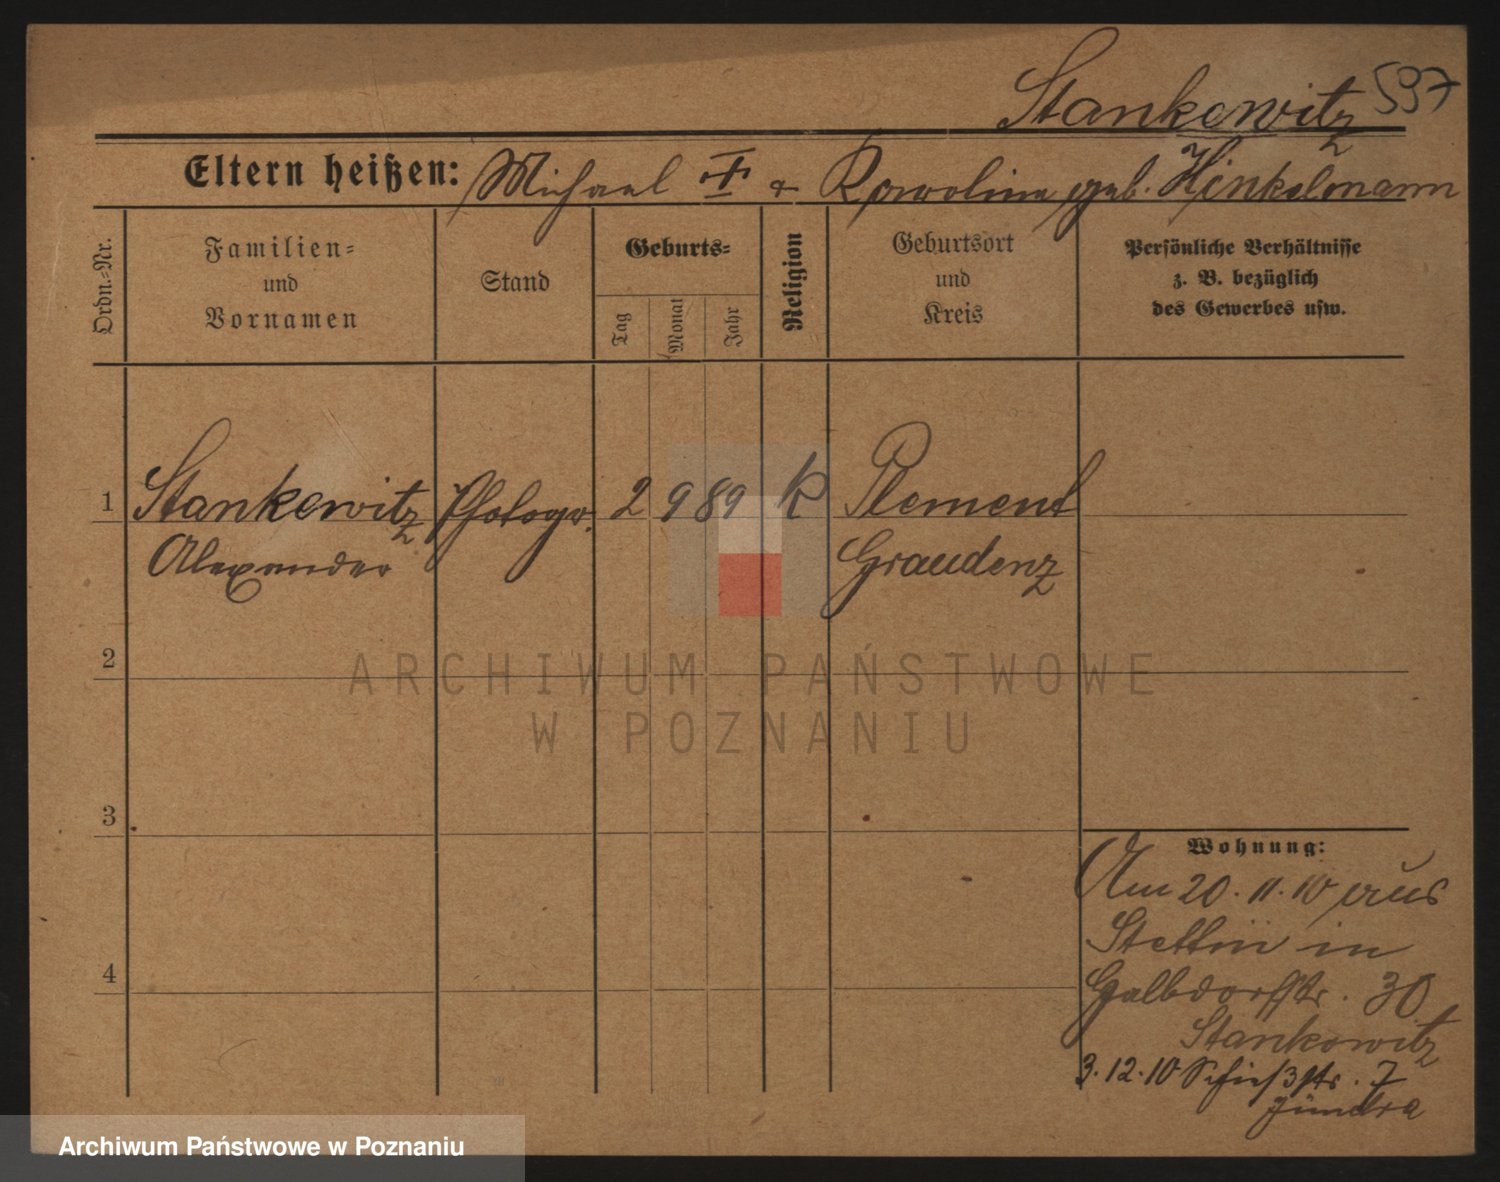 Stankewitz 597
Eltern heißen: Michael † & Karoline geb. Hinkelmann
Ordn.-Nr.
Familien-
und
Vornamen
Stand
Geburts-
Tag
Monat
Jahr
Religion
Geburtsort
und
Kreis
Persönliche Verhältnisse
z. B. bezüglich
des Gewerbes usw.
1 Stankewitz Photogr. 2 9 89 K Plement
Alexander Graudenz
2
ARCHIWUM PAŃSTWOWE
W POZNANIU
3
Wohnung:
Am 20. 11. 10 aus
Stettin in
4
30
Stankowitz
3. 12. 10 Schießstr. 7
Archiwum Państwowe w Poznaniu